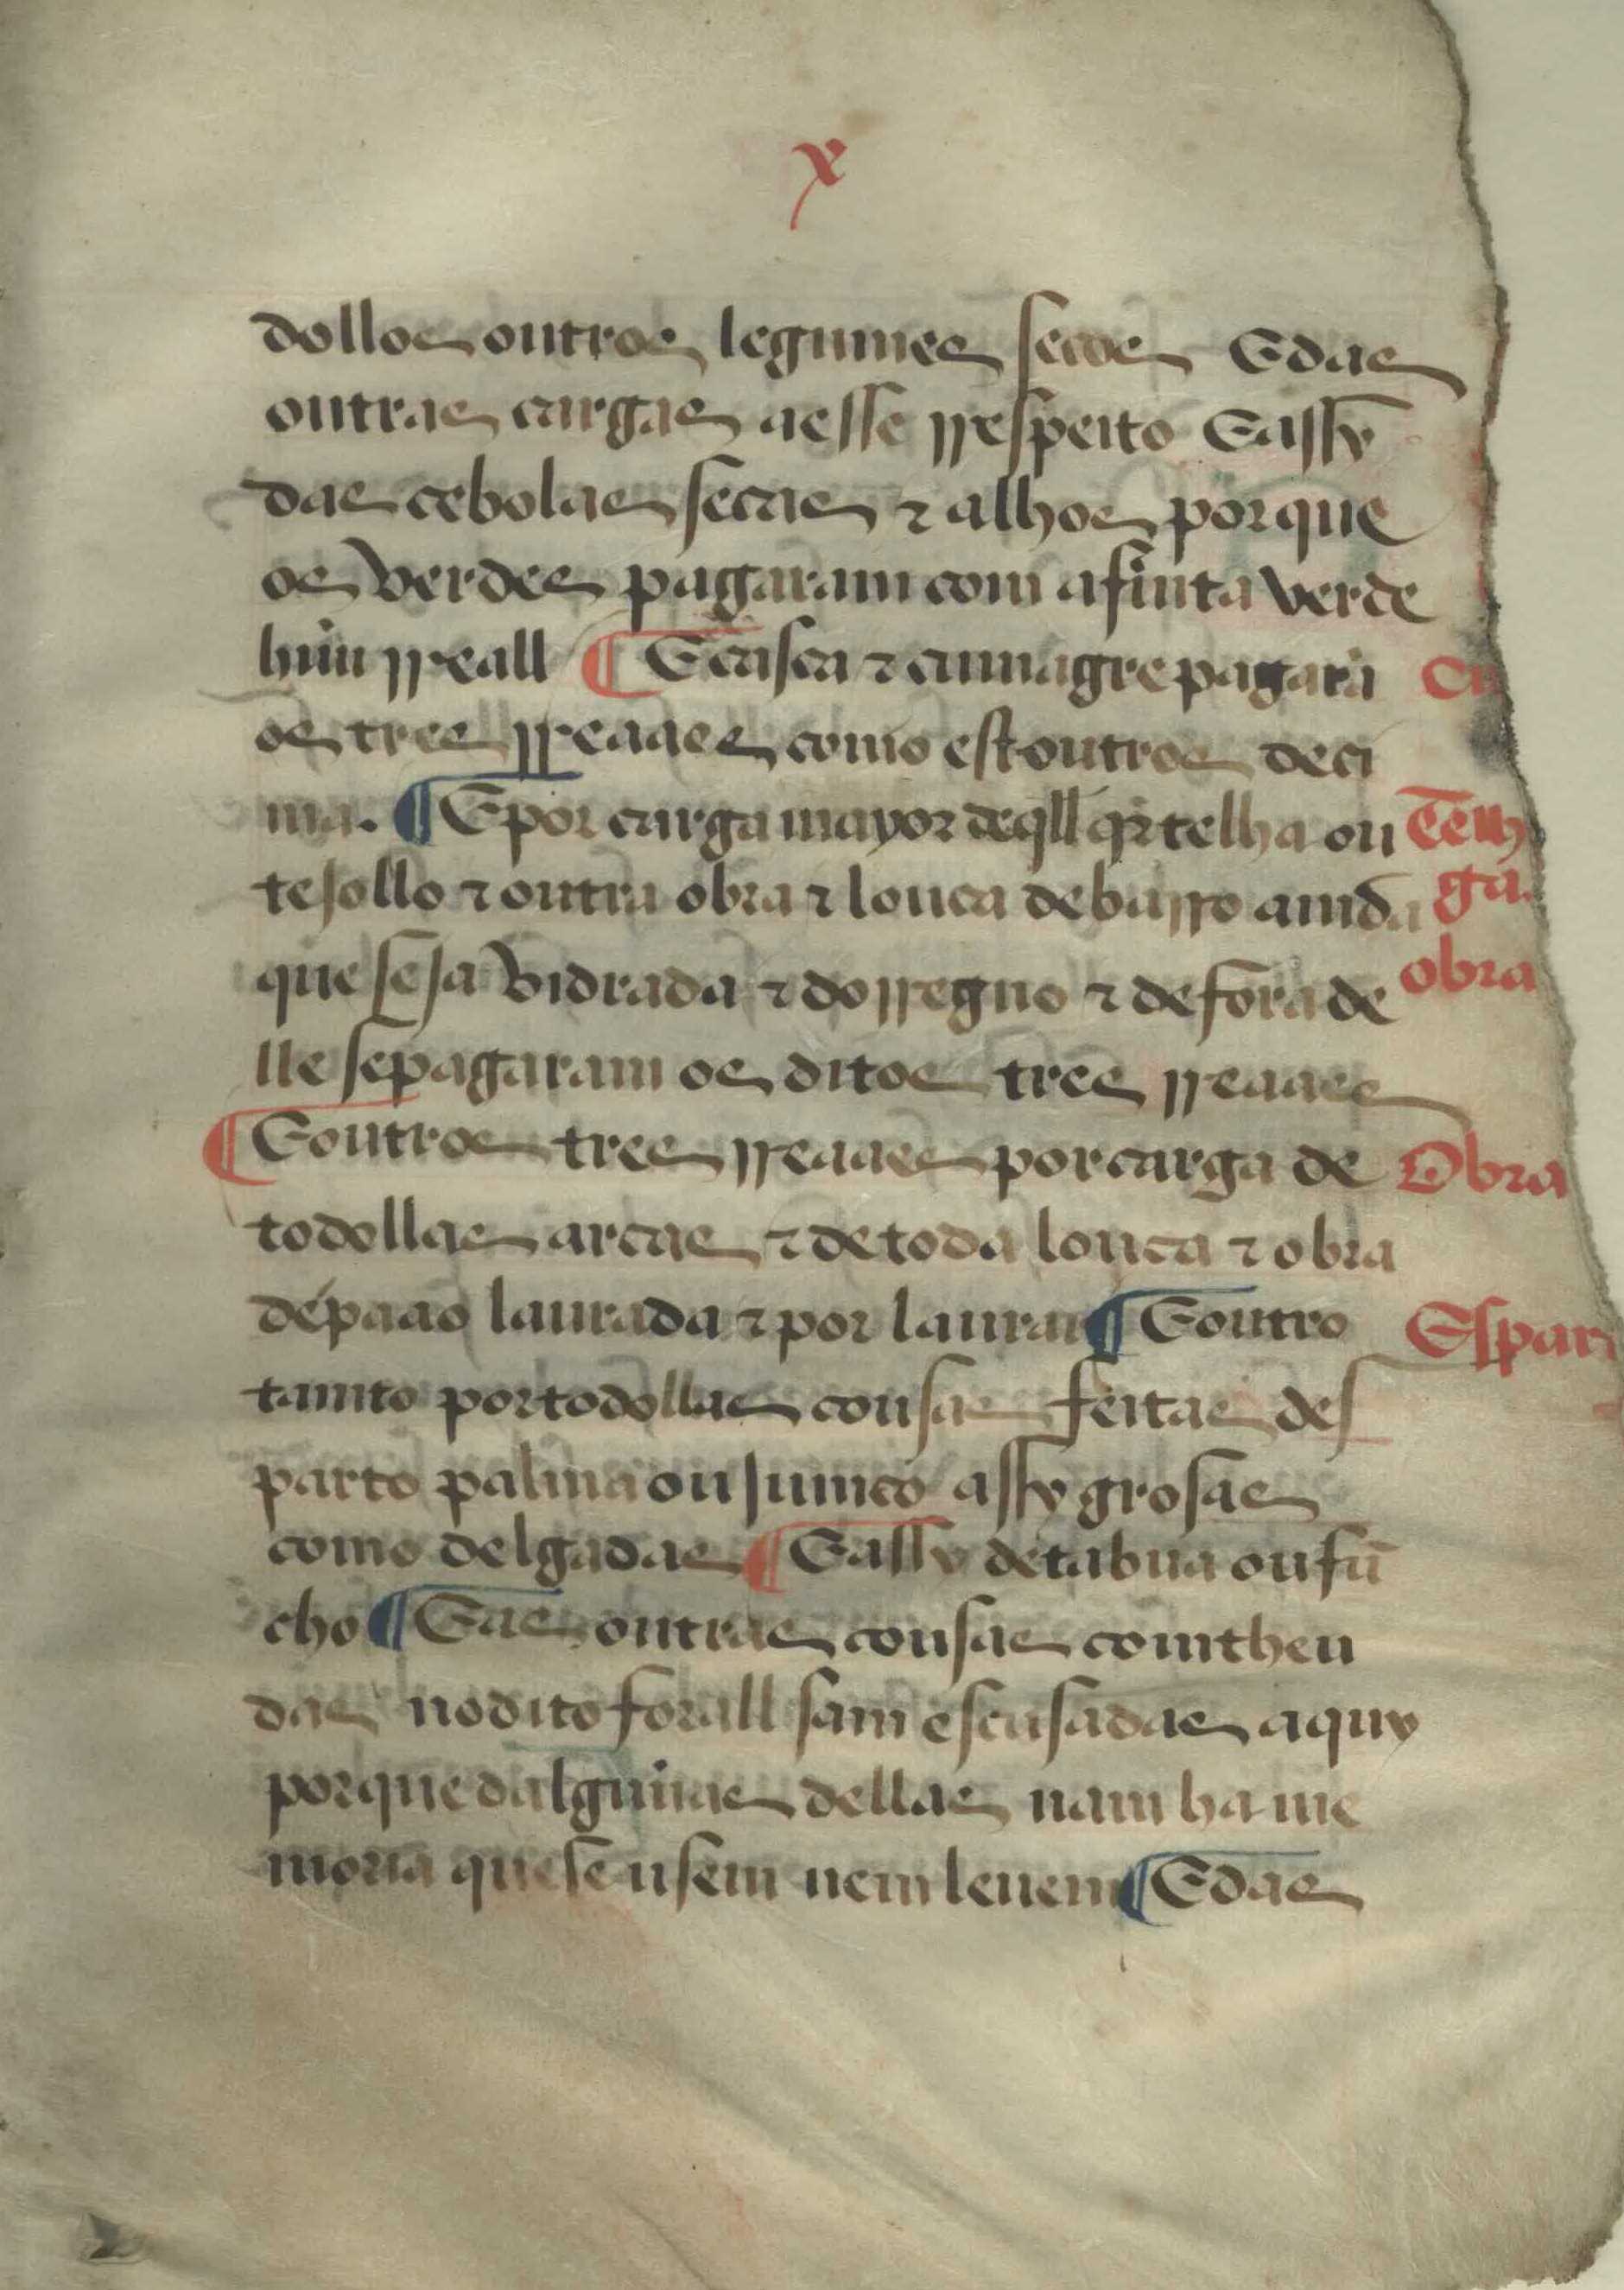 x
dollos outros legumes secos E das
outras cargas a esse rrespeito E assy
das cebolas secas ⁊ alhos porque
os verdes pagaram com a fruita verde
huũ rreall ¶ E casca ⁊ çumagre pagarã
os tres rreaaes como estoutros deci
ma. ¶ E por carga mayor de qll qr telha ou
tejollo ⁊ outra obra ⁊ louça de barro aimda
que seja vidrada ⁊ do rregno ⁊ de fora de
lle se pagaram os ditos tres rreaaes
¶ E outros tres rreaaes por carga de
todollas arcas ⁊ de toda louça ⁊ obra
de paao laurada ⁊ por laurar ¶ E outro
tamto por todollas cousas feitas des
parto palma ou jumco assy grosas
como delgadas ¶ E assy de tabua ou fũ
cho ¶ E as outras cousas comtheu
das no dito forall sam escusadas aquy
porque dalguũas dellas nam ha me
moria que se usem nem leuem ¶ E das
Telh
ga.
obra
Obra
Espar